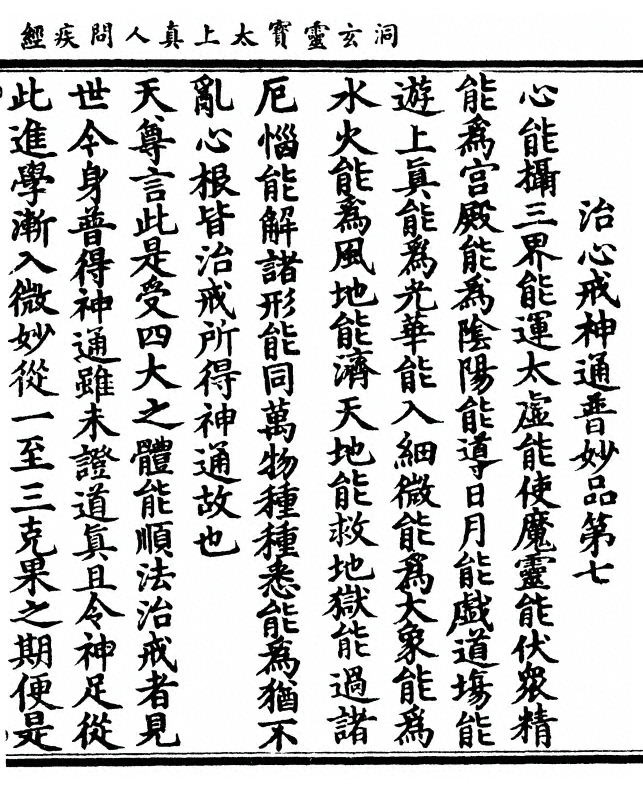 洞玄靈寶太上真人問疾經
治心戒神通普妙品第七
心能攝三界能運太虛能使魔靈能伏衆精
能爲宮殿能爲陰陽能導日月能戲道塲能
遊上眞能爲光華能入細微能爲大象能爲
水火能爲風地能濟天地能救地獄能過諸
厄惱能解諸形能同萬物種種悉能爲猶不
亂心根皆治戒所得神通故也
天尊言此是受四大之體能順法治戒者見
世今身普得神通雖未證道眞且令神足從
此進學漸入微妙從一至三克果之期便是